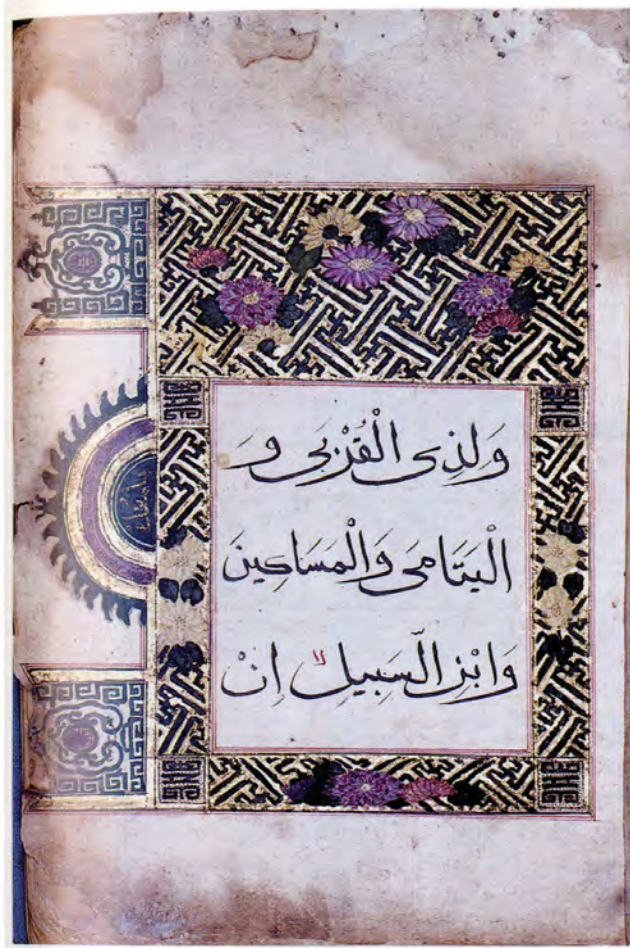 وَلِذِى الْقُرْبَى وَ
الْيَتَامَى وَالْمَسَاكِينَ
وَابْنِ السَّبِيلِ ۙ اِنْ